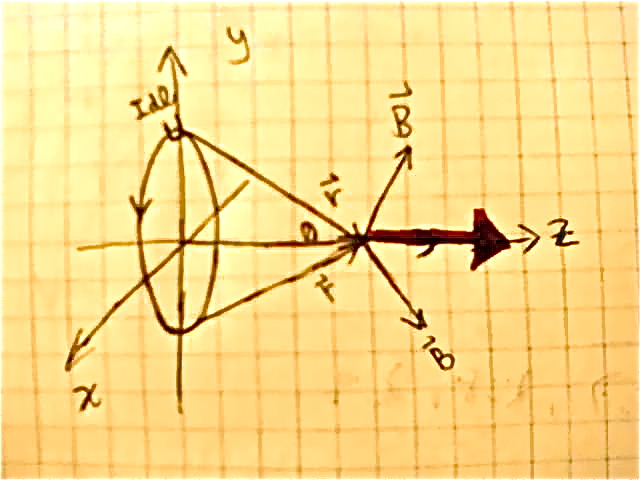 y
Idl
B
r
θ
z
r
B
x